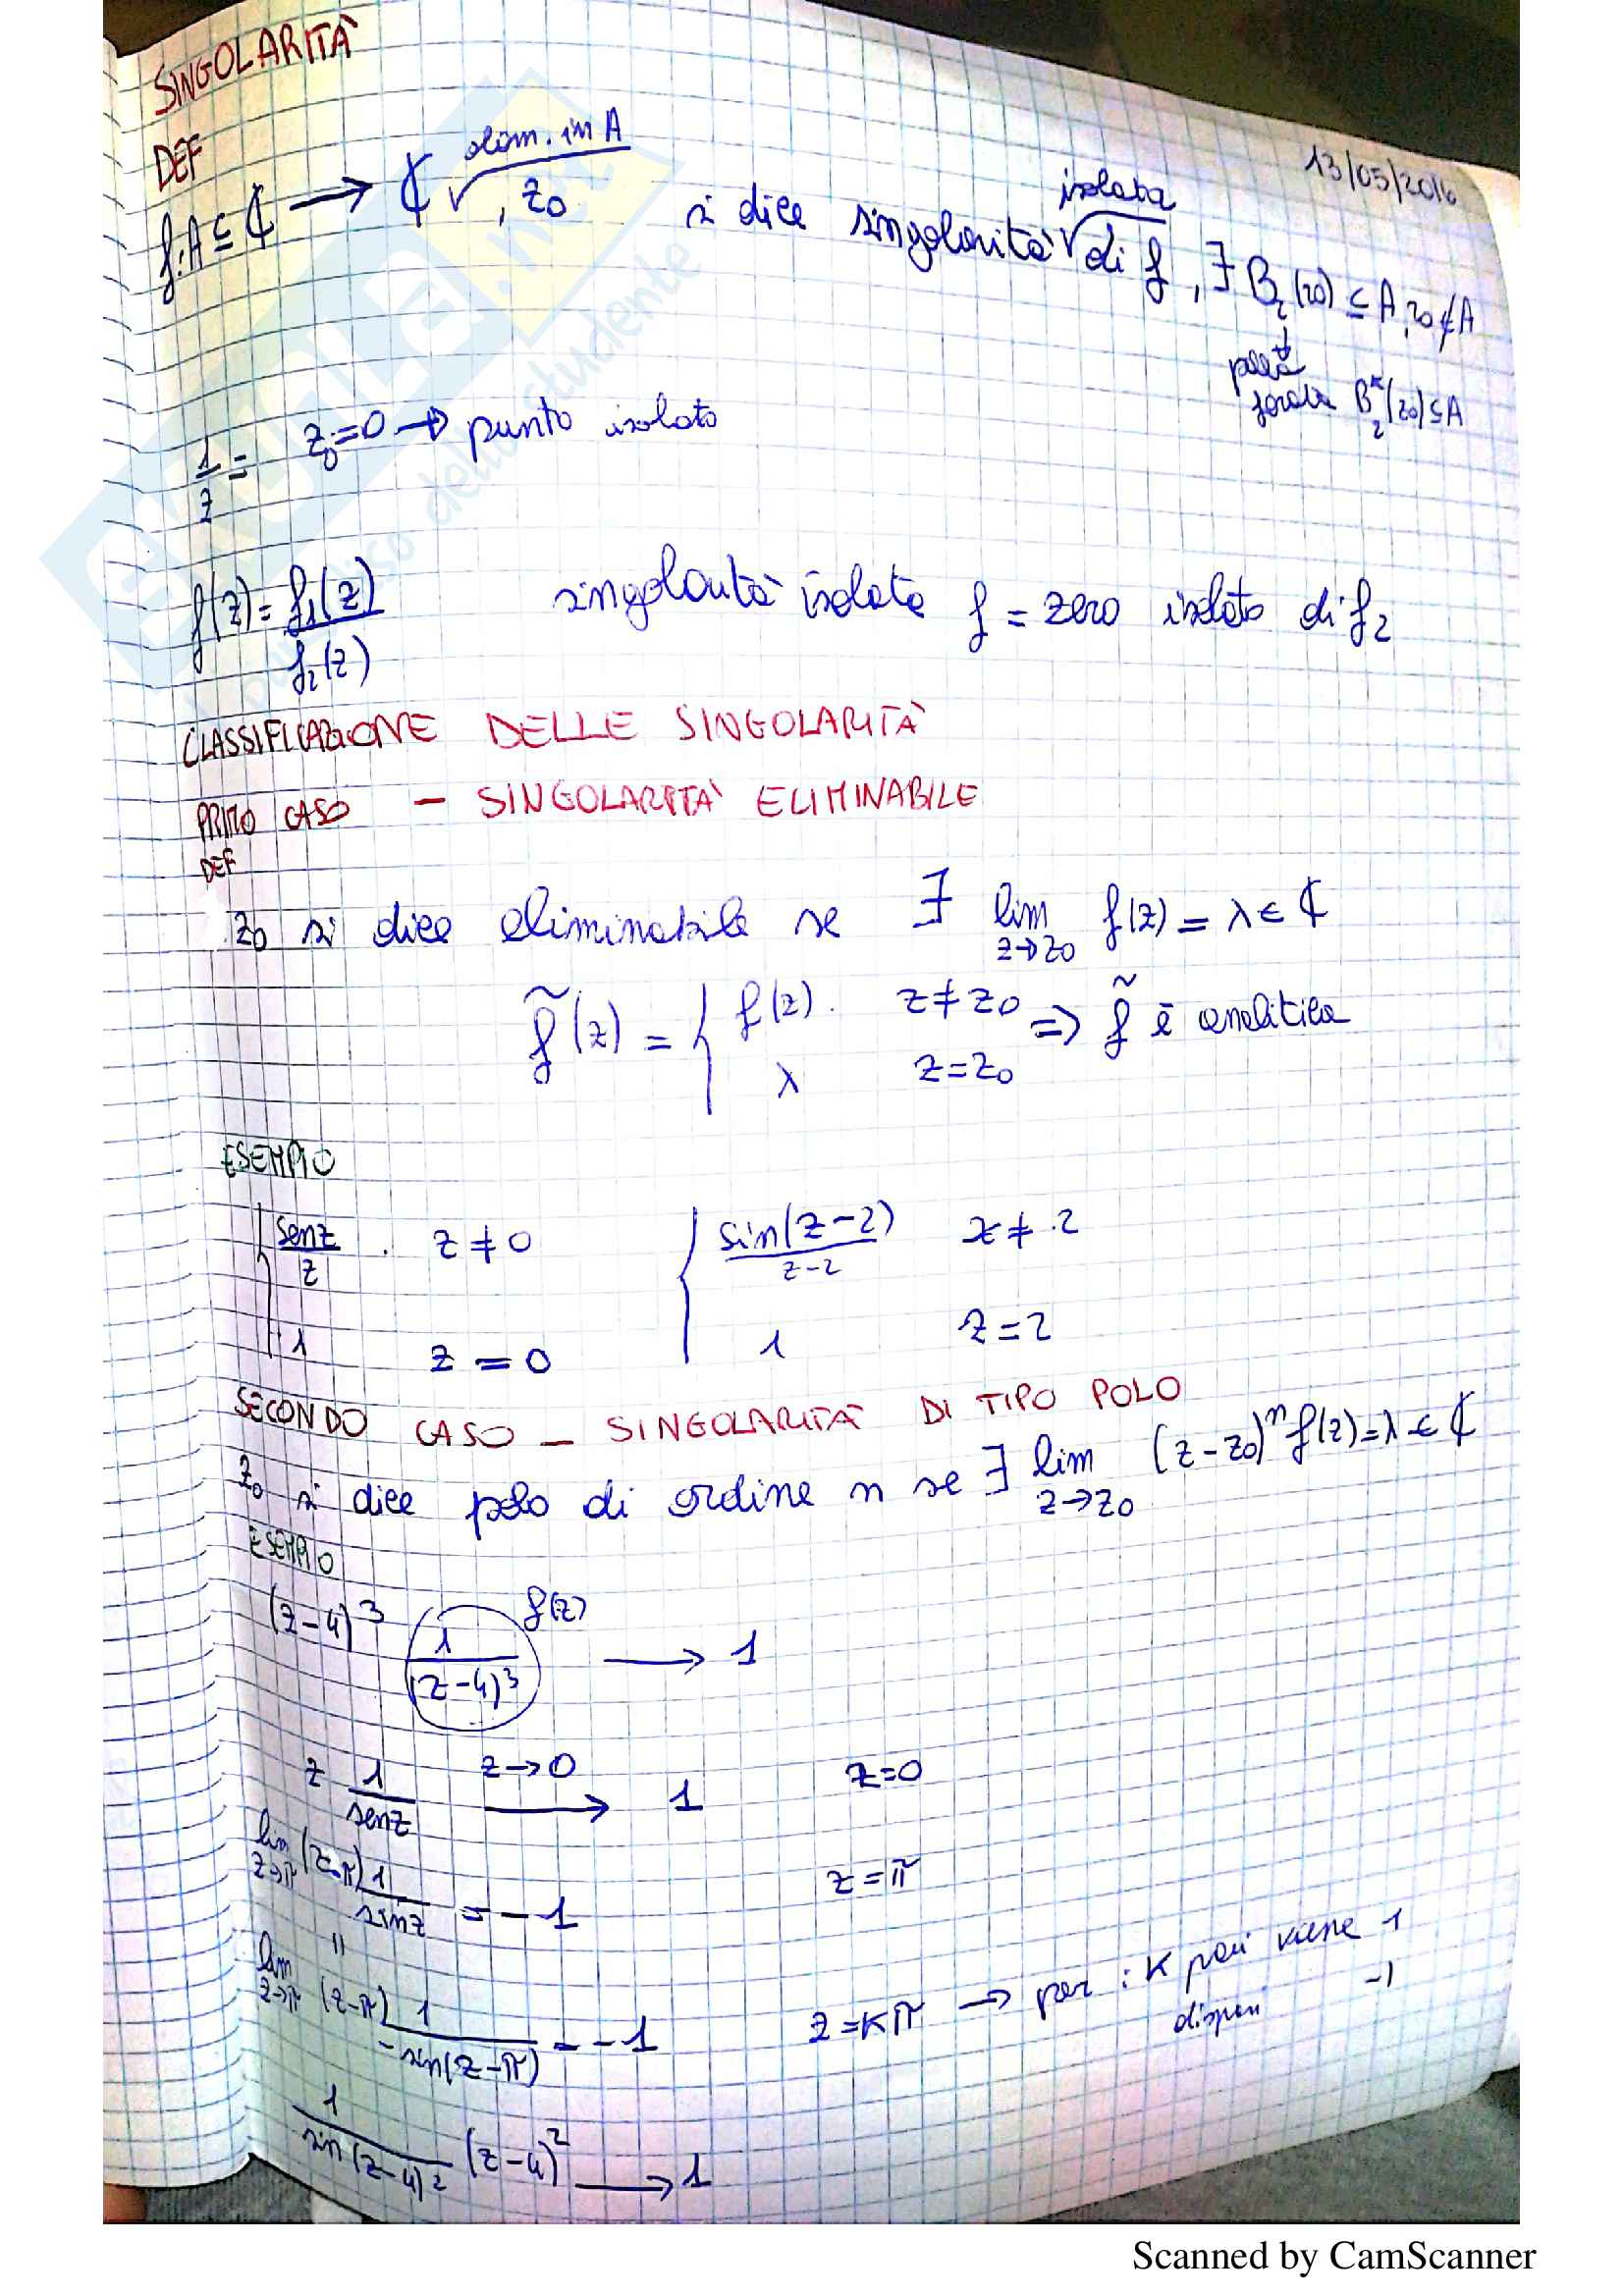 SINGOLARITÀ
13/05/2016
DEF
f: A ⊆ ℂ → ℂ √ olom. in A, z₀ si dice singolarità √ isolata di f, ∃ B₂(z₀) ⊆ A, z₀ ∉ A
palla
forata B₂*(z₀) ⊆ A
1/z = z₀=0 → punto isolato
f(z) = f₁(z)/f₂(z) singolarità isolata f = zero isolato di f₂
CLASSIFICAZIONE DELLE SINGOLARITÀ
PRIMO CASO - SINGOLARITÀ ELIMINABILE
DEF
z₀ si dice eliminabile se ∃ lim z→z₀ f(z) = λ ∈ ℂ
f̃(z) = { f(z). z ≠ z₀ ⇒ f̃ è analitica
λ z = z₀
ESEMPIO
{ senz/z . z ≠ 0 { sin(z-2)/z-2 z ≠ 2
1 z = 0 1 z = 2
SECONDO CASO - SINGOLARITÀ DI TIPO POLO
z₀ si dice polo di ordine n se ∃ lim z→z₀ (z-z₀)ⁿ f(z) = λ ∈ ℂ
ESEMPIO
(z-4)³ 1/(z-4)³ f(z) → 1
z 1/senz z→0 → 1 z=0
lim z→π (z-π) 1/sinz = -1 z=π
"
lim z→π (z-π) 1/-sin(z-π) = -1 z=kπ → per: k pari viene 1
dispari -1
1/sin(z-4)² (z-4)² → 1
SKUOLA.net
dello studente
Scanned by CamScanner